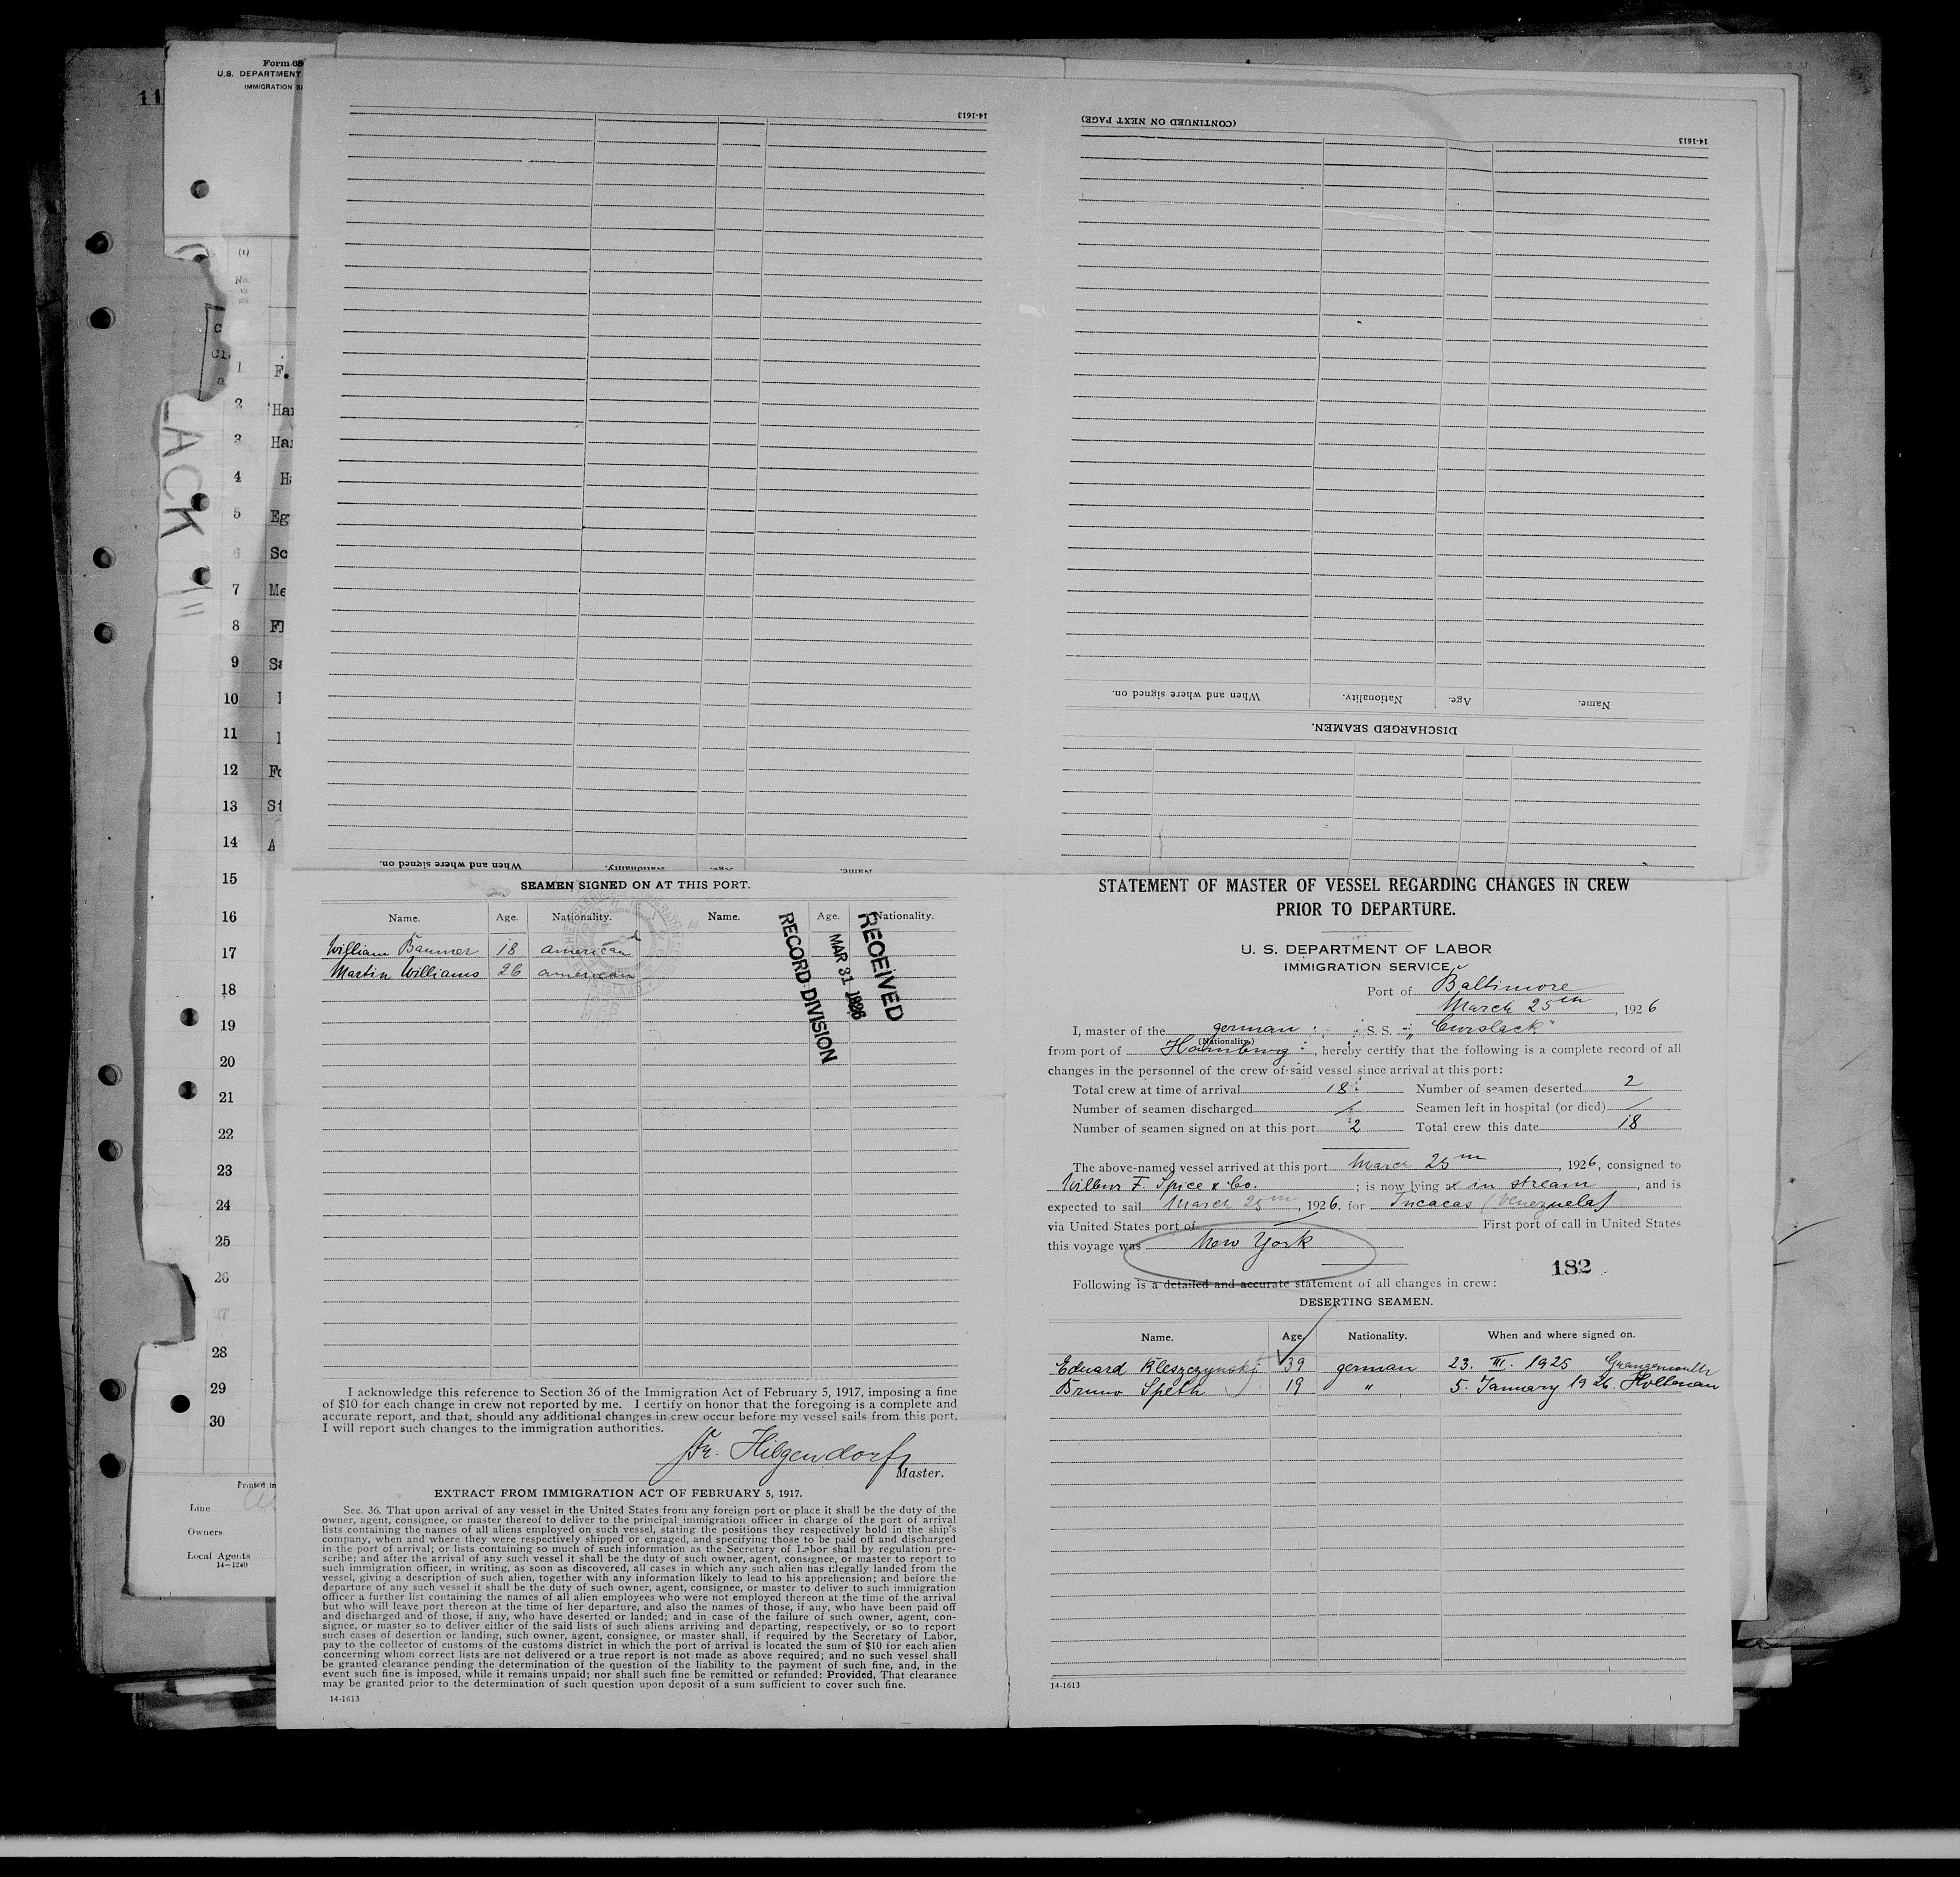 11
Form 68
U.S. DEPARTMENT
IMMIGRATION
(1)
No.
LACK
1 F.
2 Har
3 Har
4
5 Eg
6 Sc
7 Me
8 Fl
9 Sa
10
11
12 Fo
13 St
14 A
15
16
17
18
19
20
21
22
23
24
25
26
27
28
29
30
Printed in
Line
Owners
Local Agents
14-1240
14-1613
When and where signed on. Nationality. Age. Name.
(CONTINUED ON NEXT PAGE)
14-1613
When and where signed on. Nationality. Age. Name.
DISCHARGED SEAMEN.
SEAMEN SIGNED ON AT THIS PORT.
Name. Age. Nationality. Name. Age. Nationality.
William Banmer 18 american
Martin Williams 26 american
RECEIVED
MAR 31 1926
RECORD DIVISION
I acknowledge this reference to Section 36 of the Immigration Act of February 5, 1917, imposing a fine
of $10 for each change in crew not reported by me. I certify on honor that the foregoing is a complete and
accurate report, and that, should any additional changes in crew occur before my vessel sails from this port,
I will report such changes to the immigration authorities.
Fr. Hilgendorf
Master.
EXTRACT FROM IMMIGRATION ACT OF FEBRUARY 5, 1917.
Sec. 36. That upon arrival of any vessel in the United States from any foreign port or place it shall be the duty of the
owner, agent, consignee, or master thereof to deliver to the principal immigration officer in charge of the port of arrival
lists containing the names of all aliens employed on such vessel, stating the positions they respectively hold in the ship's
company, when and where they were respectively shipped or engaged, and specifying those to be paid off and discharged
in the port of arrival; or lists containing so much of such information as the Secretary of Labor shall by regulation pre-
scribe; and after the arrival of any such vessel it shall be the duty of such owner, agent, consignee, or master to report to
such immigration officer, in writing, as soon as discovered, all cases in which any such alien has illegally landed from the
vessel, giving a description of such alien, together with any information likely to lead to his apprehension; and before the
departure of any such vessel it shall be the duty of such owner, agent, consignee, or master to deliver to such immigration
officer a further list containing the names of all alien employees who were not employed thereon at the time of the arrival
but who will leave port thereon at the time of her departure, and also the names of those, if any, who have been paid off
and discharged and of those, if any, who have deserted or landed; and in case of the failure of such owner, agent, con-
signee, or master so to deliver either of the said lists of such aliens arriving and departing, respectively, or so to report
such cases of desertion or landing, such owner, agent, consignee, or master shall, if required by the Secretary of Labor,
pay to the collector of customs of the customs district in which the port of arrival is located the sum of $10 for each alien
concerning whom correct lists are not delivered or a true report is not made as above required; and no such vessel shall
be granted clearance pending the determination of the question of the liability to the payment of such fine, and, in the
event such fine is imposed, while it remains unpaid; nor shall such fine be remitted or refunded: Provided, That clearance
may be granted prior to the determination of such question upon deposit of a sum sufficient to cover such fine.
14-1613
STATEMENT OF MASTER OF VESSEL REGARDING CHANGES IN CREW
PRIOR TO DEPARTURE.
U. S. DEPARTMENT OF LABOR
IMMIGRATION SERVICE
Port of Baltimore
March 25th, 1926
I, master of the german S. S. "Curslack"
(Nationality)
from port of Hamburg, hereby certify that the following is a complete record of all
changes in the personnel of the crew of said vessel since arrival at this port:
Total crew at time of arrival 18 Number of seamen deserted 2
Number of seamen discharged / Seamen left in hospital (or died) /
Number of seamen signed on at this port 2 Total crew this date 18
The above-named vessel arrived at this port March 25th, 1926, consigned to
Wilbur F. Spice & Co.; is now lying at in stream, and is
expected to sail March 25th, 1926. for Tucacas (Venezuela)
via United States port of First port of call in United States
this voyage was New York
182
Following is a detailed and accurate statement of all changes in crew:
DESERTING SEAMEN.
Name. Age. Nationality. When and where signed on.
Eduard Kleszczynski 39 german 23. III. 1925 Grangemouth
Bruno Speth 19 " 5. January 1926. Holtenau
14-1613